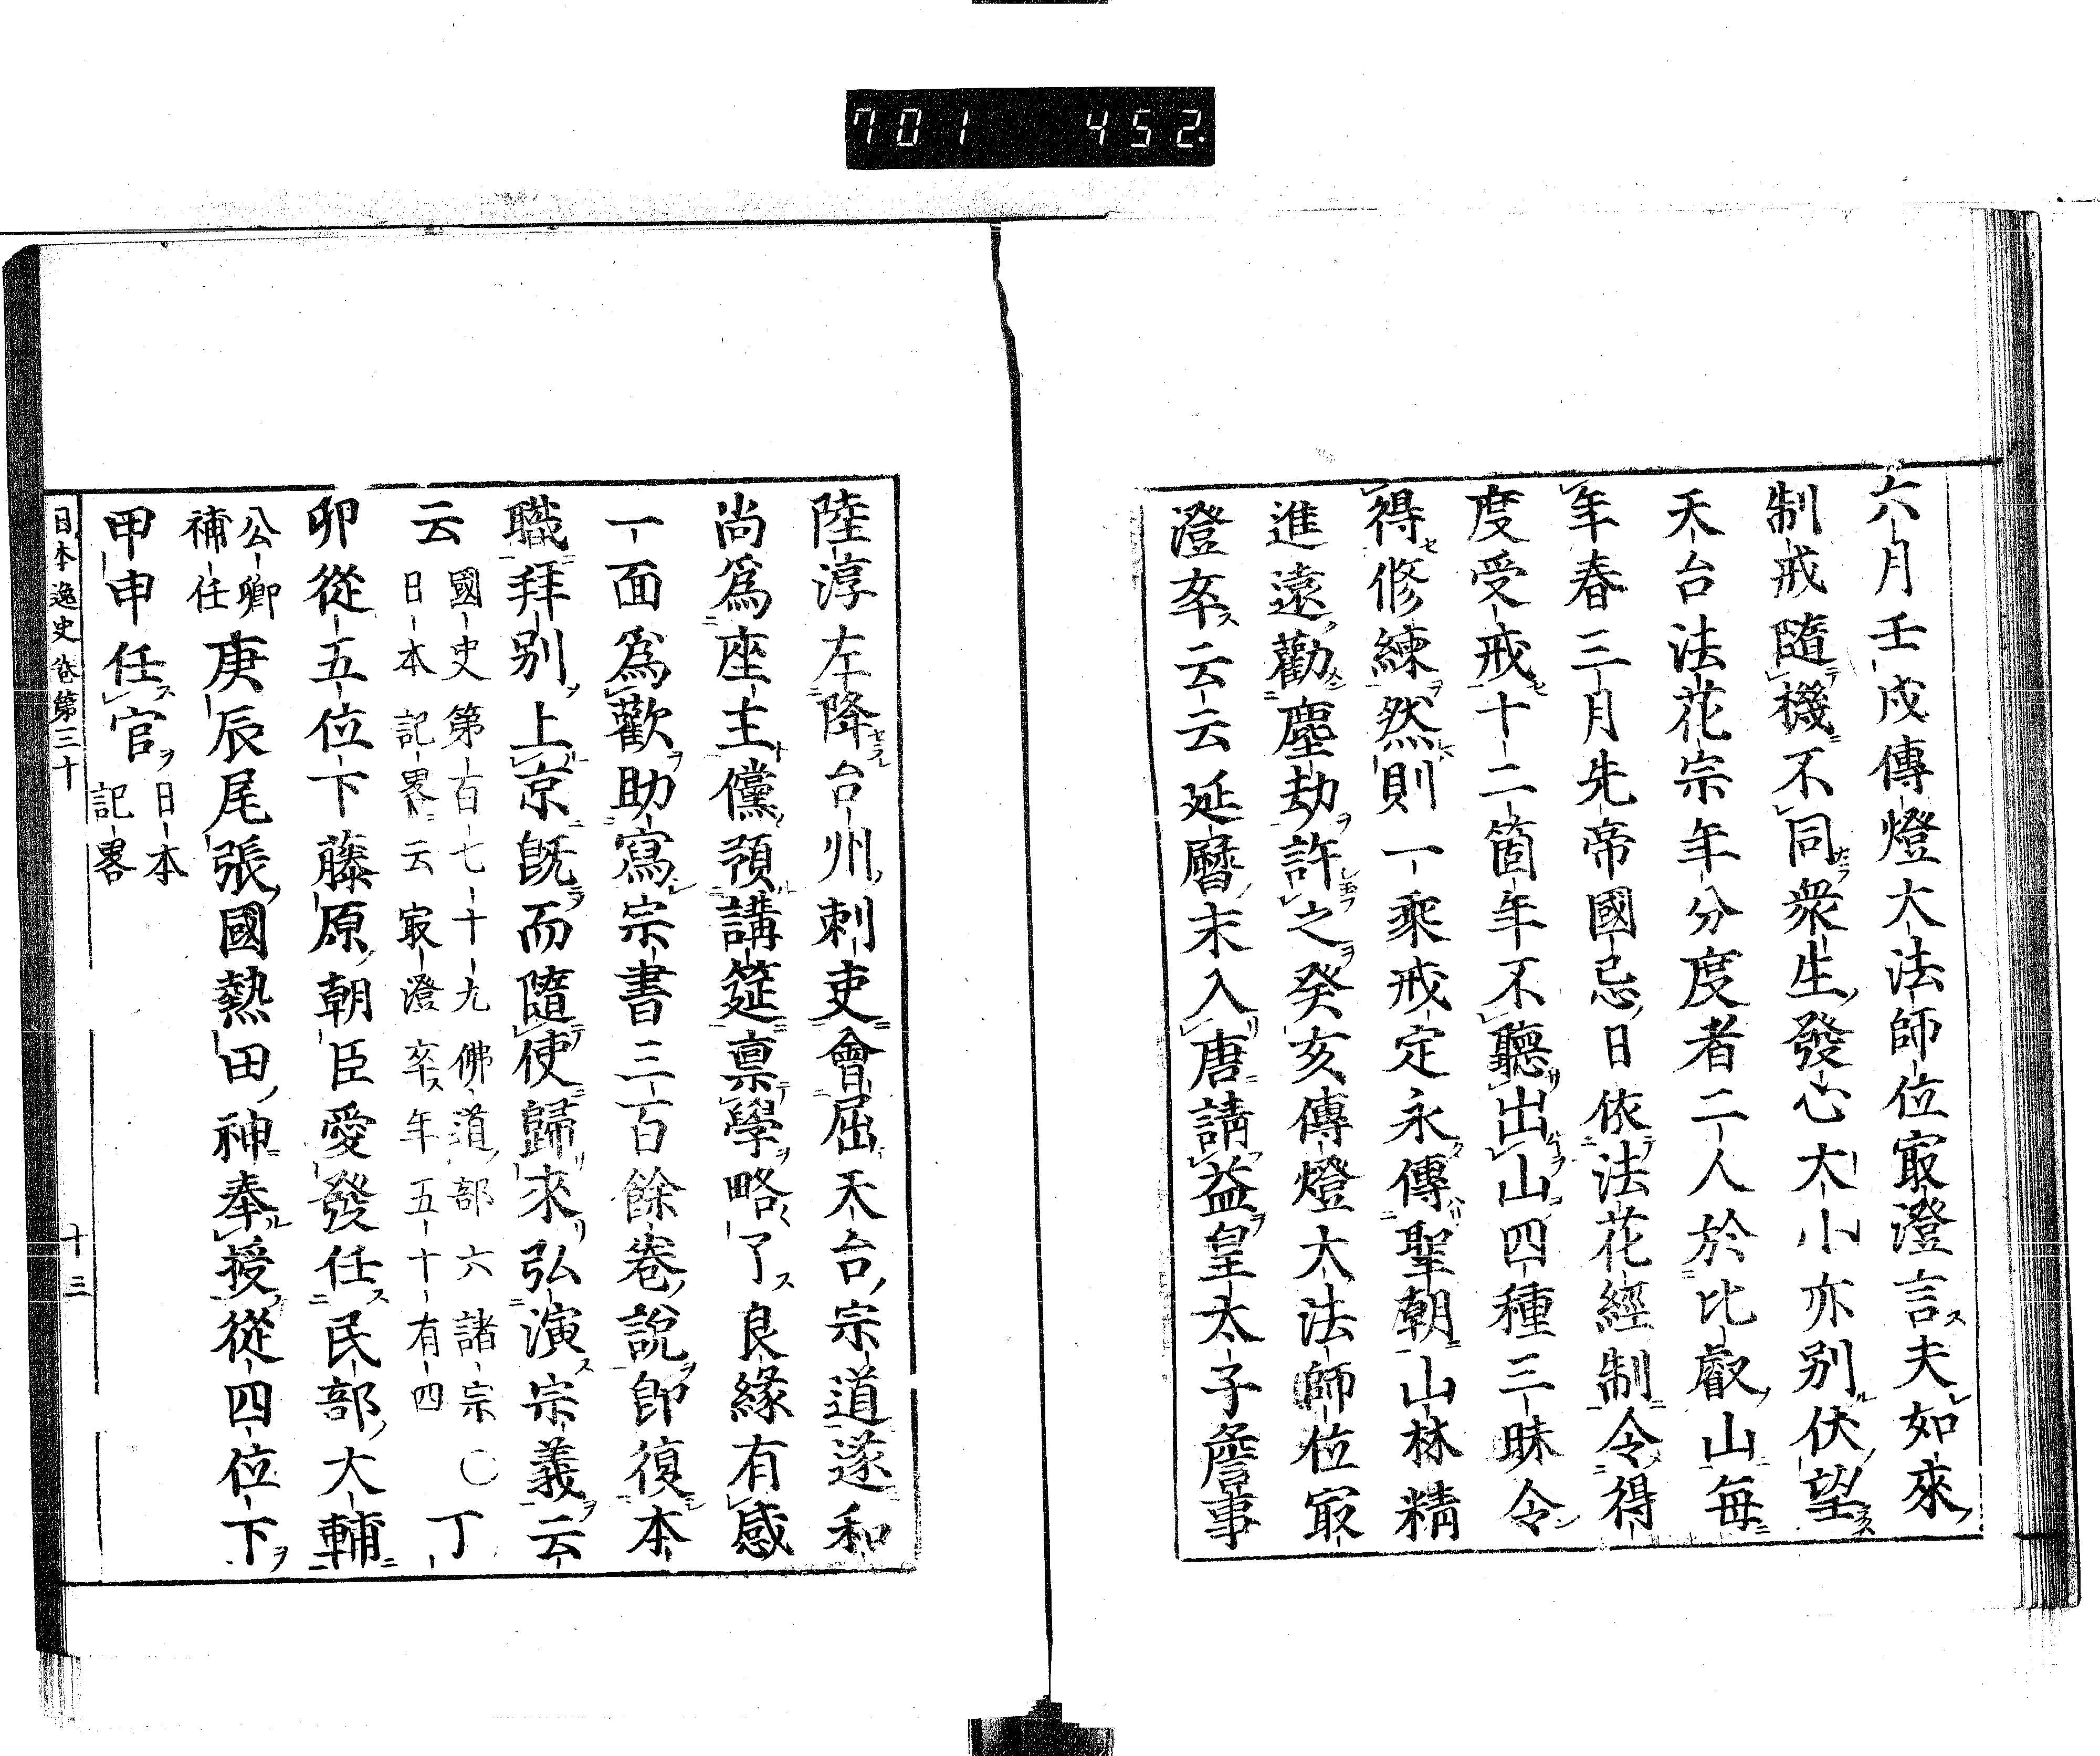 701 452.
六月壬戌傳燈大法師位㝡澄言夫如來
制戒隨機不同衆生發心大小亦別伏望
天台法花宗年分度者二人於比叡山每
年春三月先帝國忌日依法花經制令得
度受戒十二箇年不聽出山四種三昧令
得修練然則一乘戒定永傳聖朝山林精
進遠勸塵劫許之癸亥傳燈大法師位㝡
澄卒云云延曆末入唐請益皇太子詹事
陸淳左降台州刺吏會屈天台宗道邃和
尚爲座主儻預講筵禀學略了良緣有感
一面爲歡助寫宗書三百餘卷說卽復本
職拜別上京旣而隨使歸來弘演宗義云
云 國史第百七十九佛道部六諸宗〇
日本記畧云㝡澄卒年五十有四 丁
卯從五位下藤原朝臣愛發任民部大輔
公卿補任 庚辰尾張國熱田神奉授從四位下
甲申任官 日本記畧
日本逸史卷第三十 十三